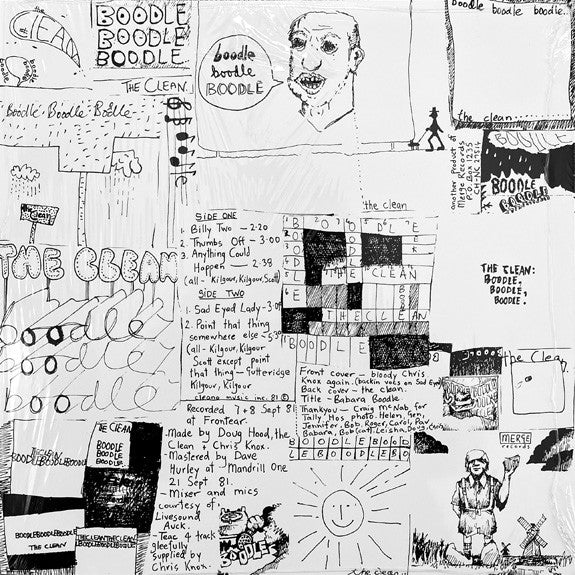 the CLEAN
BOODLE
BOODLE
BOODLE
boodle
boodle
BOODLE
Boodle boodle boodle.
the clean
THE CLEAN.
Boodle · Boodle · Bodle
THE CLEAN
another Product of
Merge Records
P.O. Box 1235
CH·NC 27514
BOODLE
BOODLE
the clean
SIDE ONE
1. Billy Two — 2·20
2. Thumbs Off — 3·00
3. Anything Could
Happen — 2·38
(all - Kilgour, Kilgour, Scott)
SIDE TWO
1. Sad Eyed Lady - 3·0
2. Point that thing
somewhere else - 5·3
(all - Kilgour, Kilgour
Scott except point
that thing - Gutteridge
Kilgour, Kilgour
cleano music inc. 81 ©
THE CLEAN
THE CLEAN
BOODLE
THE CLEAN:
BOODLE,
BOODLE,
BOODLE!
boodle
boo
boodle
Front cover - bloody Chris
Knox again. (backin vocs on Sad Eye
Back cover - the clean.
Title - Babara Boodle
Thankyou - Craig McNab for
Tally Ho's photo. Helen, Gen,
Jennifer, Bob, Roger, Carol, Pav
Babara, Bob (cat) Leisha, Do
BOODLEBOOD
LEBOODLEBO
the Clean
Recorded 7 + 8 Sept 81
at Frontear.
-Made by Doug Hood, the
Clean & Chris Knox.
-Mastered by Dave
Hurley at Mandrill One
21 Sept 81.
- Mixer and mics
courtesy of
Livesound
Auck.
-Teac 4 track
gleefully
supplied by
Chris Knox.
THE CLEAN
BOODLE
BOODLE
BOODLE.
BOODLEBOODLEBOODLE
THE CLEAN
THECLEANTHECLEAN
BOODLE
MERGE
records
the clean